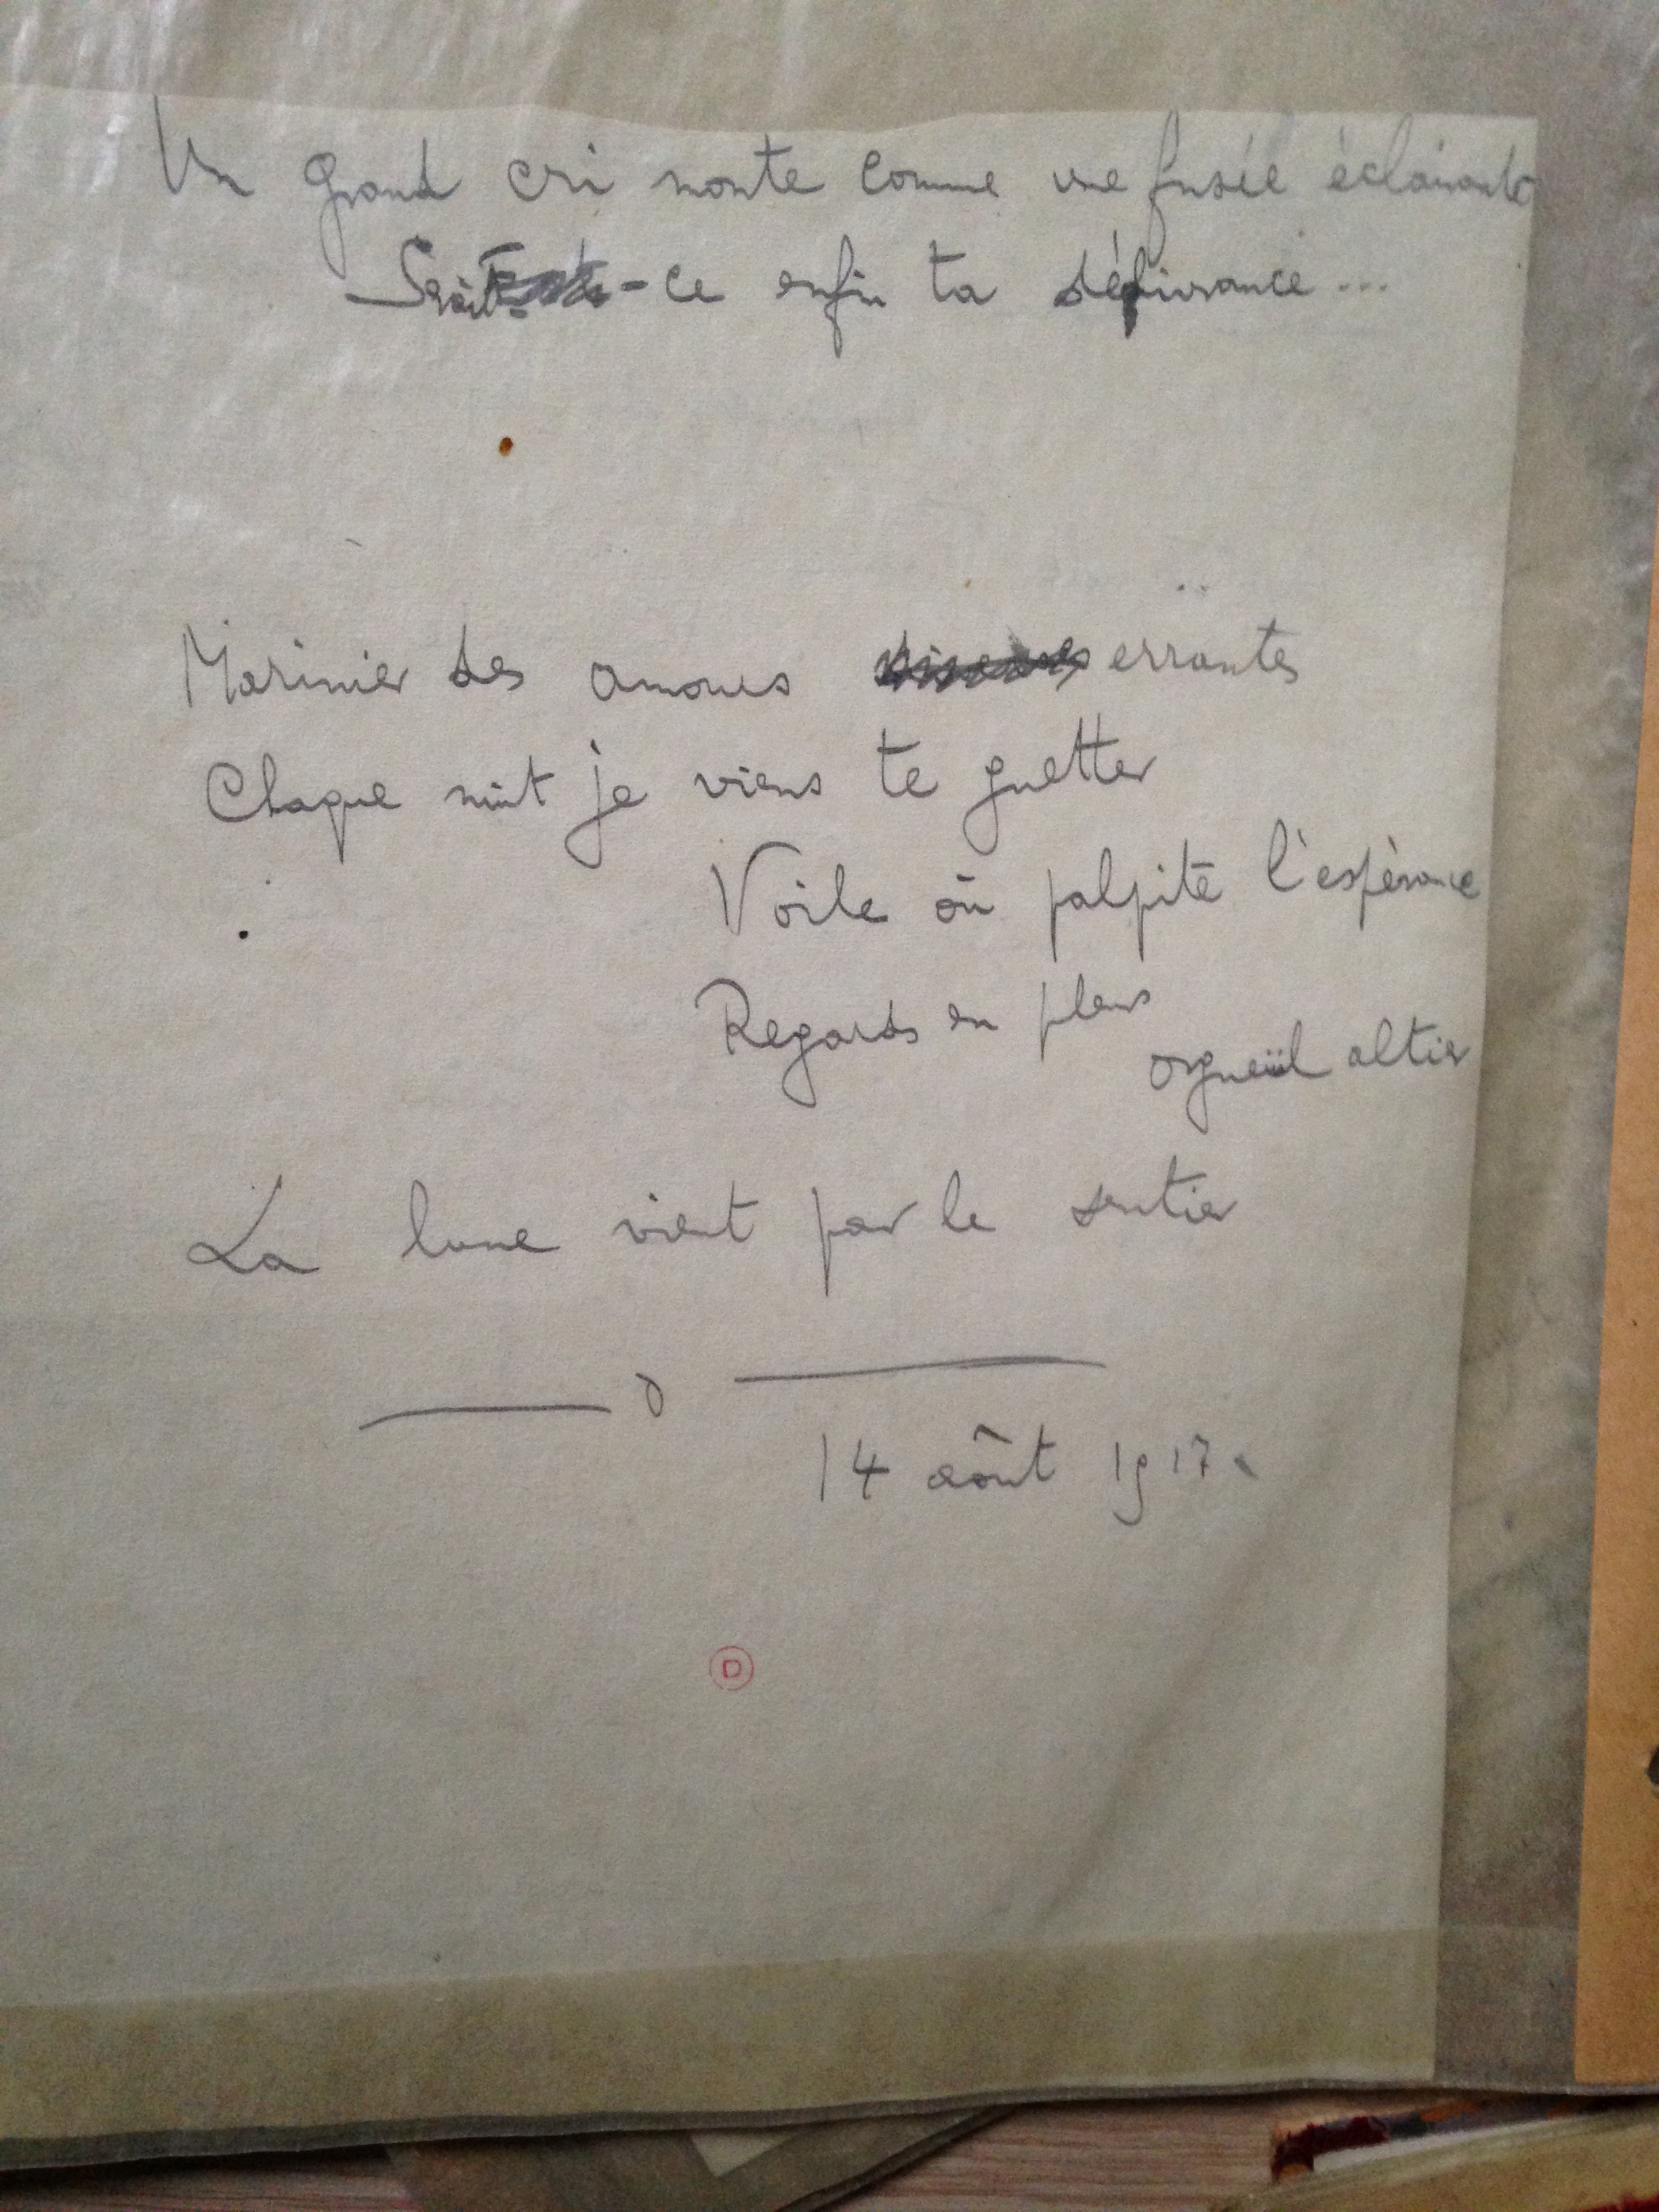 Un grand cri monte comme une fusée éclairante
Serait-ce enfin ta délivrance ...
Marinier des amours errantes
Chaque nuit je viens te guetter
Voile où palpite l'espérance
Regards en pleur
orgueil altier
La lune vient par le sentier
14 août 1917.